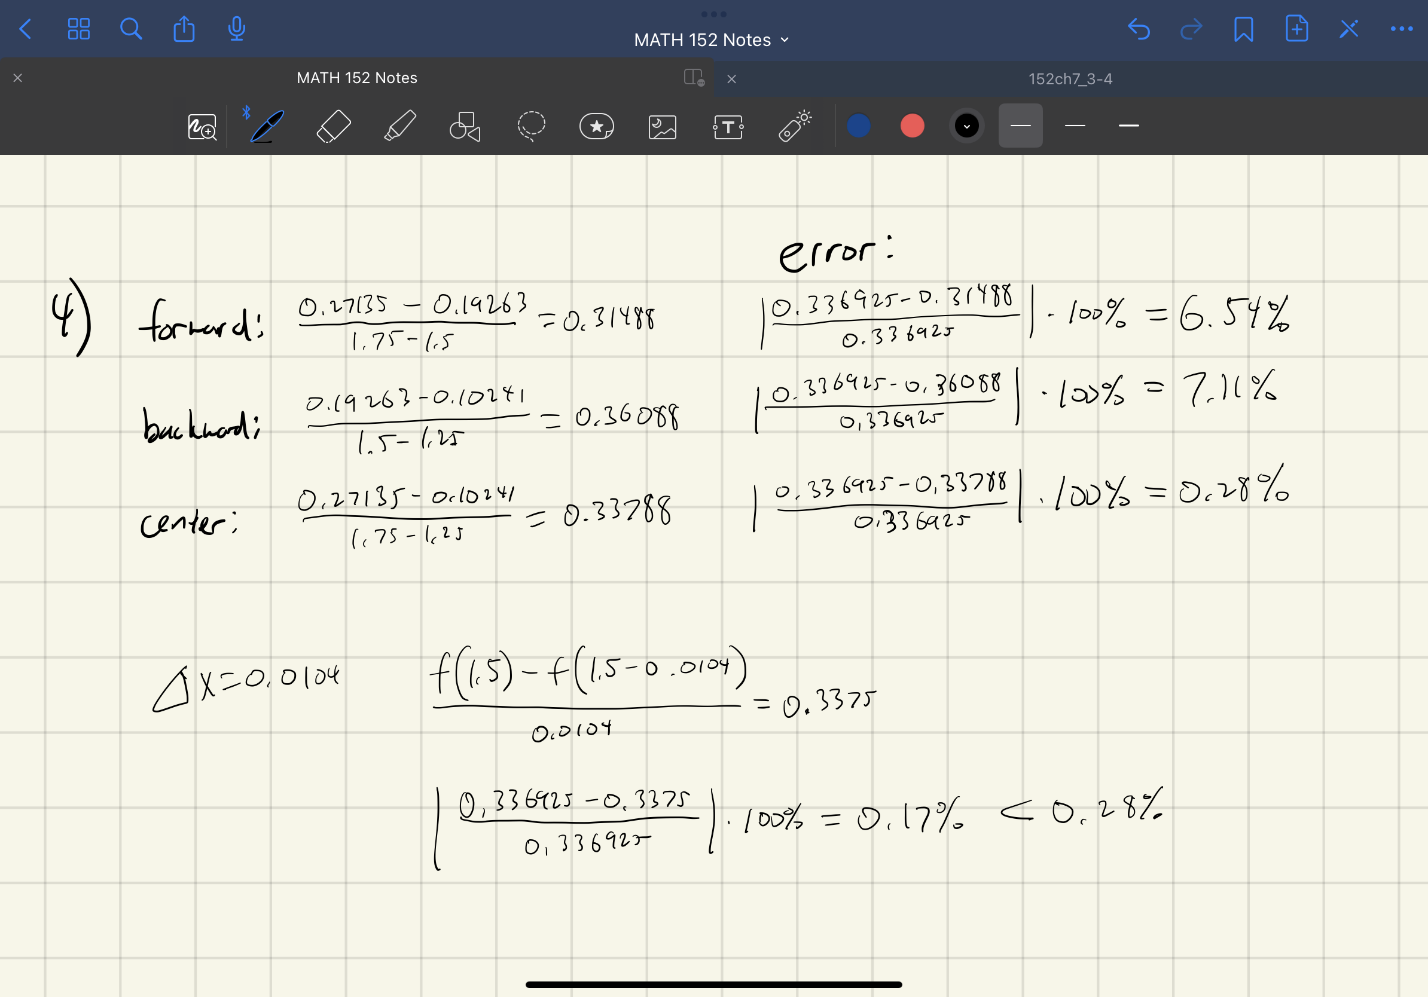 MATH 152 Notes
MATH 152 Notes
152ch7_3-4
T
error:
4) forward: (0.27135 - 0.19263)/(1.75 - 1.5) = 0.31488 |(0.336925 - 0.31488)/0.336925| · 100% = 6.54%
backward: (0.19263 - 0.10241)/(1.5 - 1.25) = 0.36088 |(0.336925 - 0.36088)/0.336925| · 100% = 7.11%
center: (0.27135 - 0.10241)/(1.75 - 1.25) = 0.33788 |(0.336925 - 0.33788)/0.336925| · 100% = 0.28%
Δx = 0.0104 (f(1.5) - f(1.5 - 0.0104))/0.0104 = 0.3375
|(0.336925 - 0.3375)/0.336925| · 100% = 0.17% < 0.28%